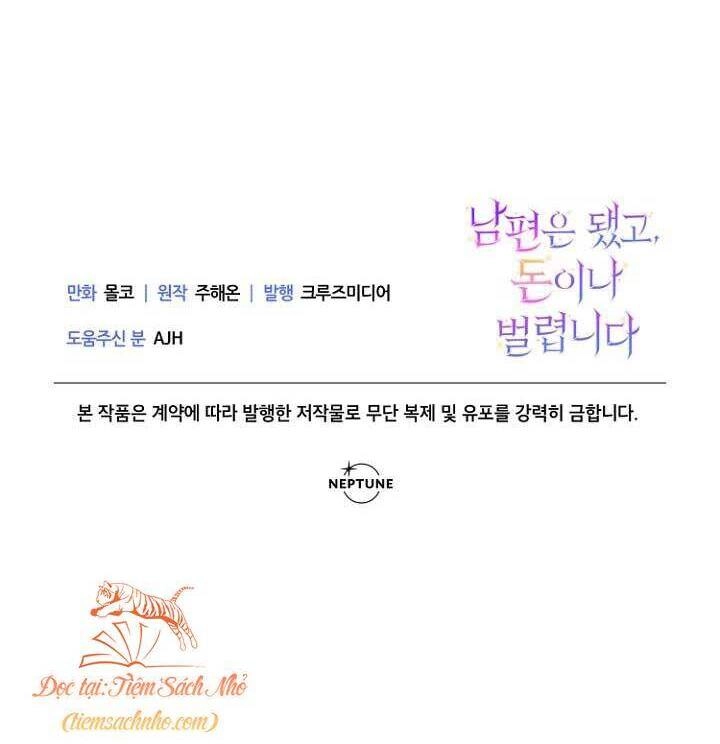 남편은 됐고,
돈이나
벌렵니다
만화 몰코 | 원작 주해온 | 발행 크루즈미디어
도움주신 분 AJH
본 작품은 계약에 따라 발행한 저작물로 무단 복제 및 유포를 강력히 금합니다.
NEPTUNE
Đọc tại: Tiệm Sách Nhỏ
(tiemsachnho.com)